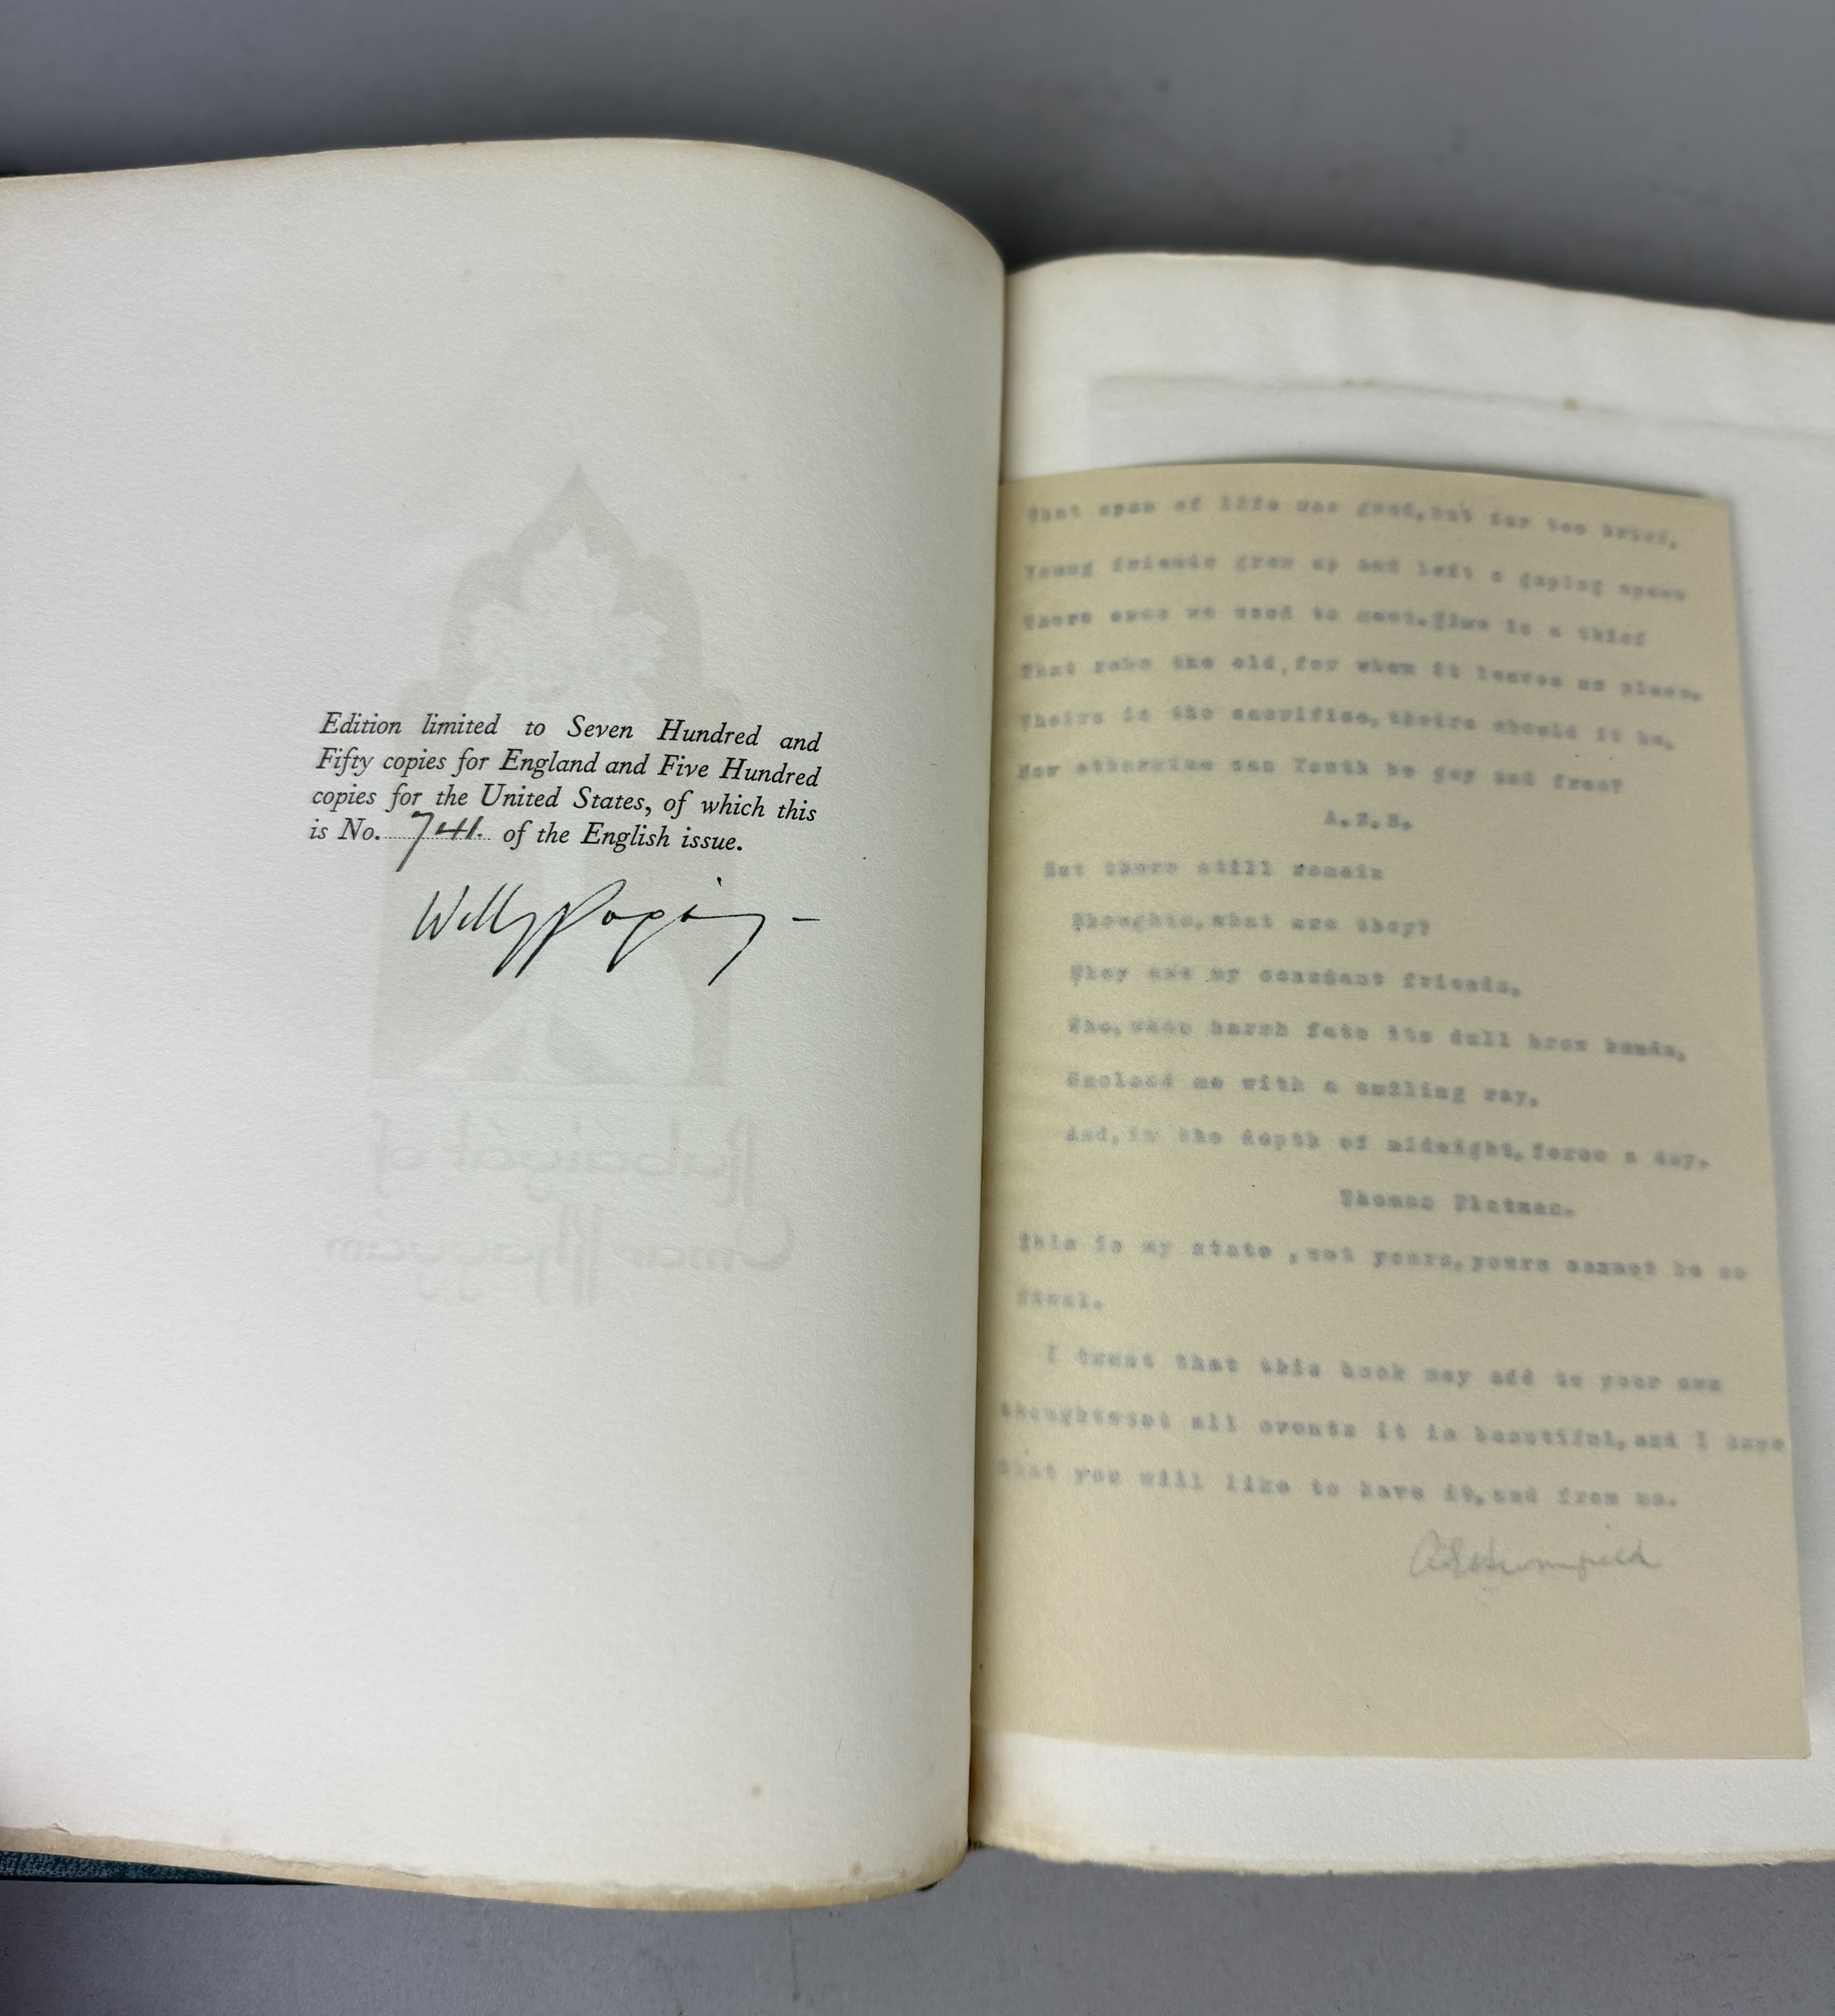 Edition limited to Seven Hundred and
Fifty copies for England and Five Hundred
copies for the United States, of which this
is No. 741. of the English issue.
Willy Pogány
Rubaiyát of
Omar Khayyám
That span of life was good,but far too brief,
Young friends grew up and left a gaping space
Where once we used to meet.Time is a thief
That robs the old,for whom it leaves no place.
Theirs is the sacrifice,theirs should it be,
How otherwise can Youth be gay and free?
But there still remain
Thoughts,what are they?
They are my constant friends,
Who,when harsh fate its dull brow bends,
me with a smiling ray,
And,in the depth of midnight,force a day.
Thomas Flatman.
This is my state ,not yours,yours cannot be so
final.
I trust that this book may add to your own
at all events it is beautiful,and I hope
that you will like to have it,and from me.